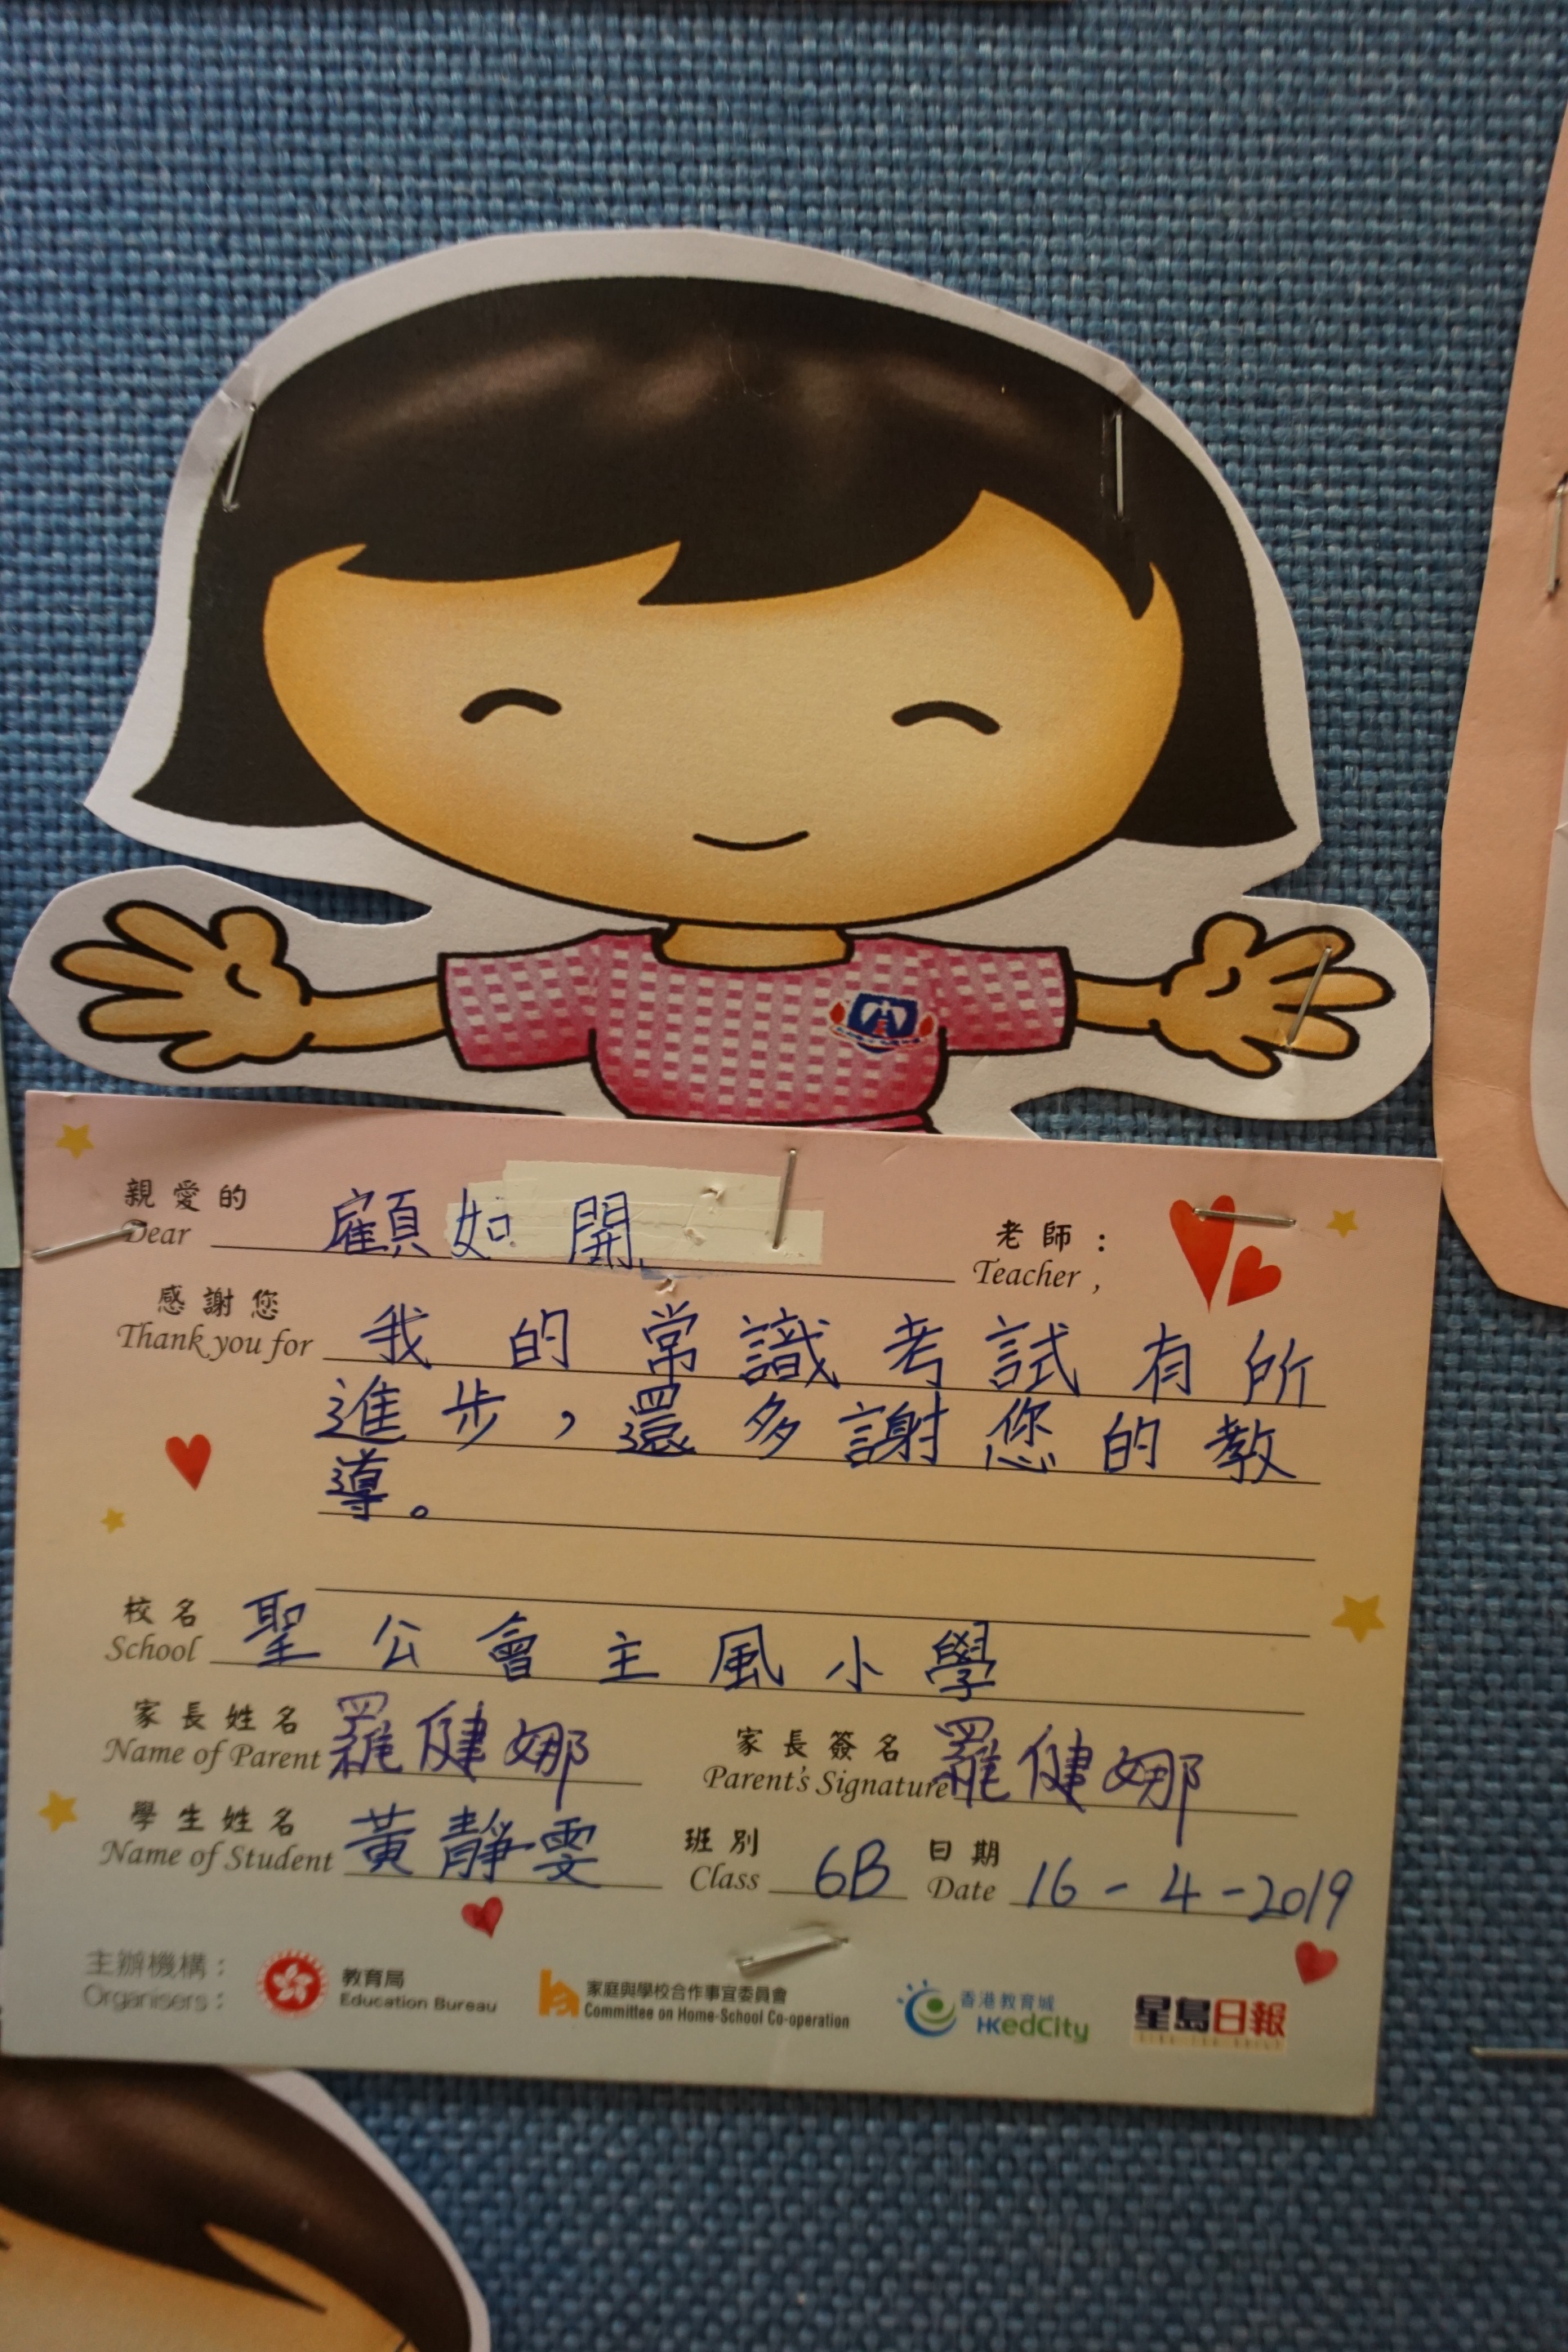 親愛的 顧如開 老師：
Dear Teacher ,
感謝您 我的常識考試有所
Thank you for
進步，還多謝您的教
導。
校名 聖公會主風小學
School
家長姓名 羅健娜 家長簽名 羅健娜
Name of Parent Parent's Signature
學生姓名 黃靜雯 班別 6B 日期 16-4-2019
Name of Student Class Date
主辦機構： 教育局 家庭與學校合作事宜委員會 香港教育城 星島日報
Organisers： Education Bureau Committee on Home-School Co-operation HKedCity